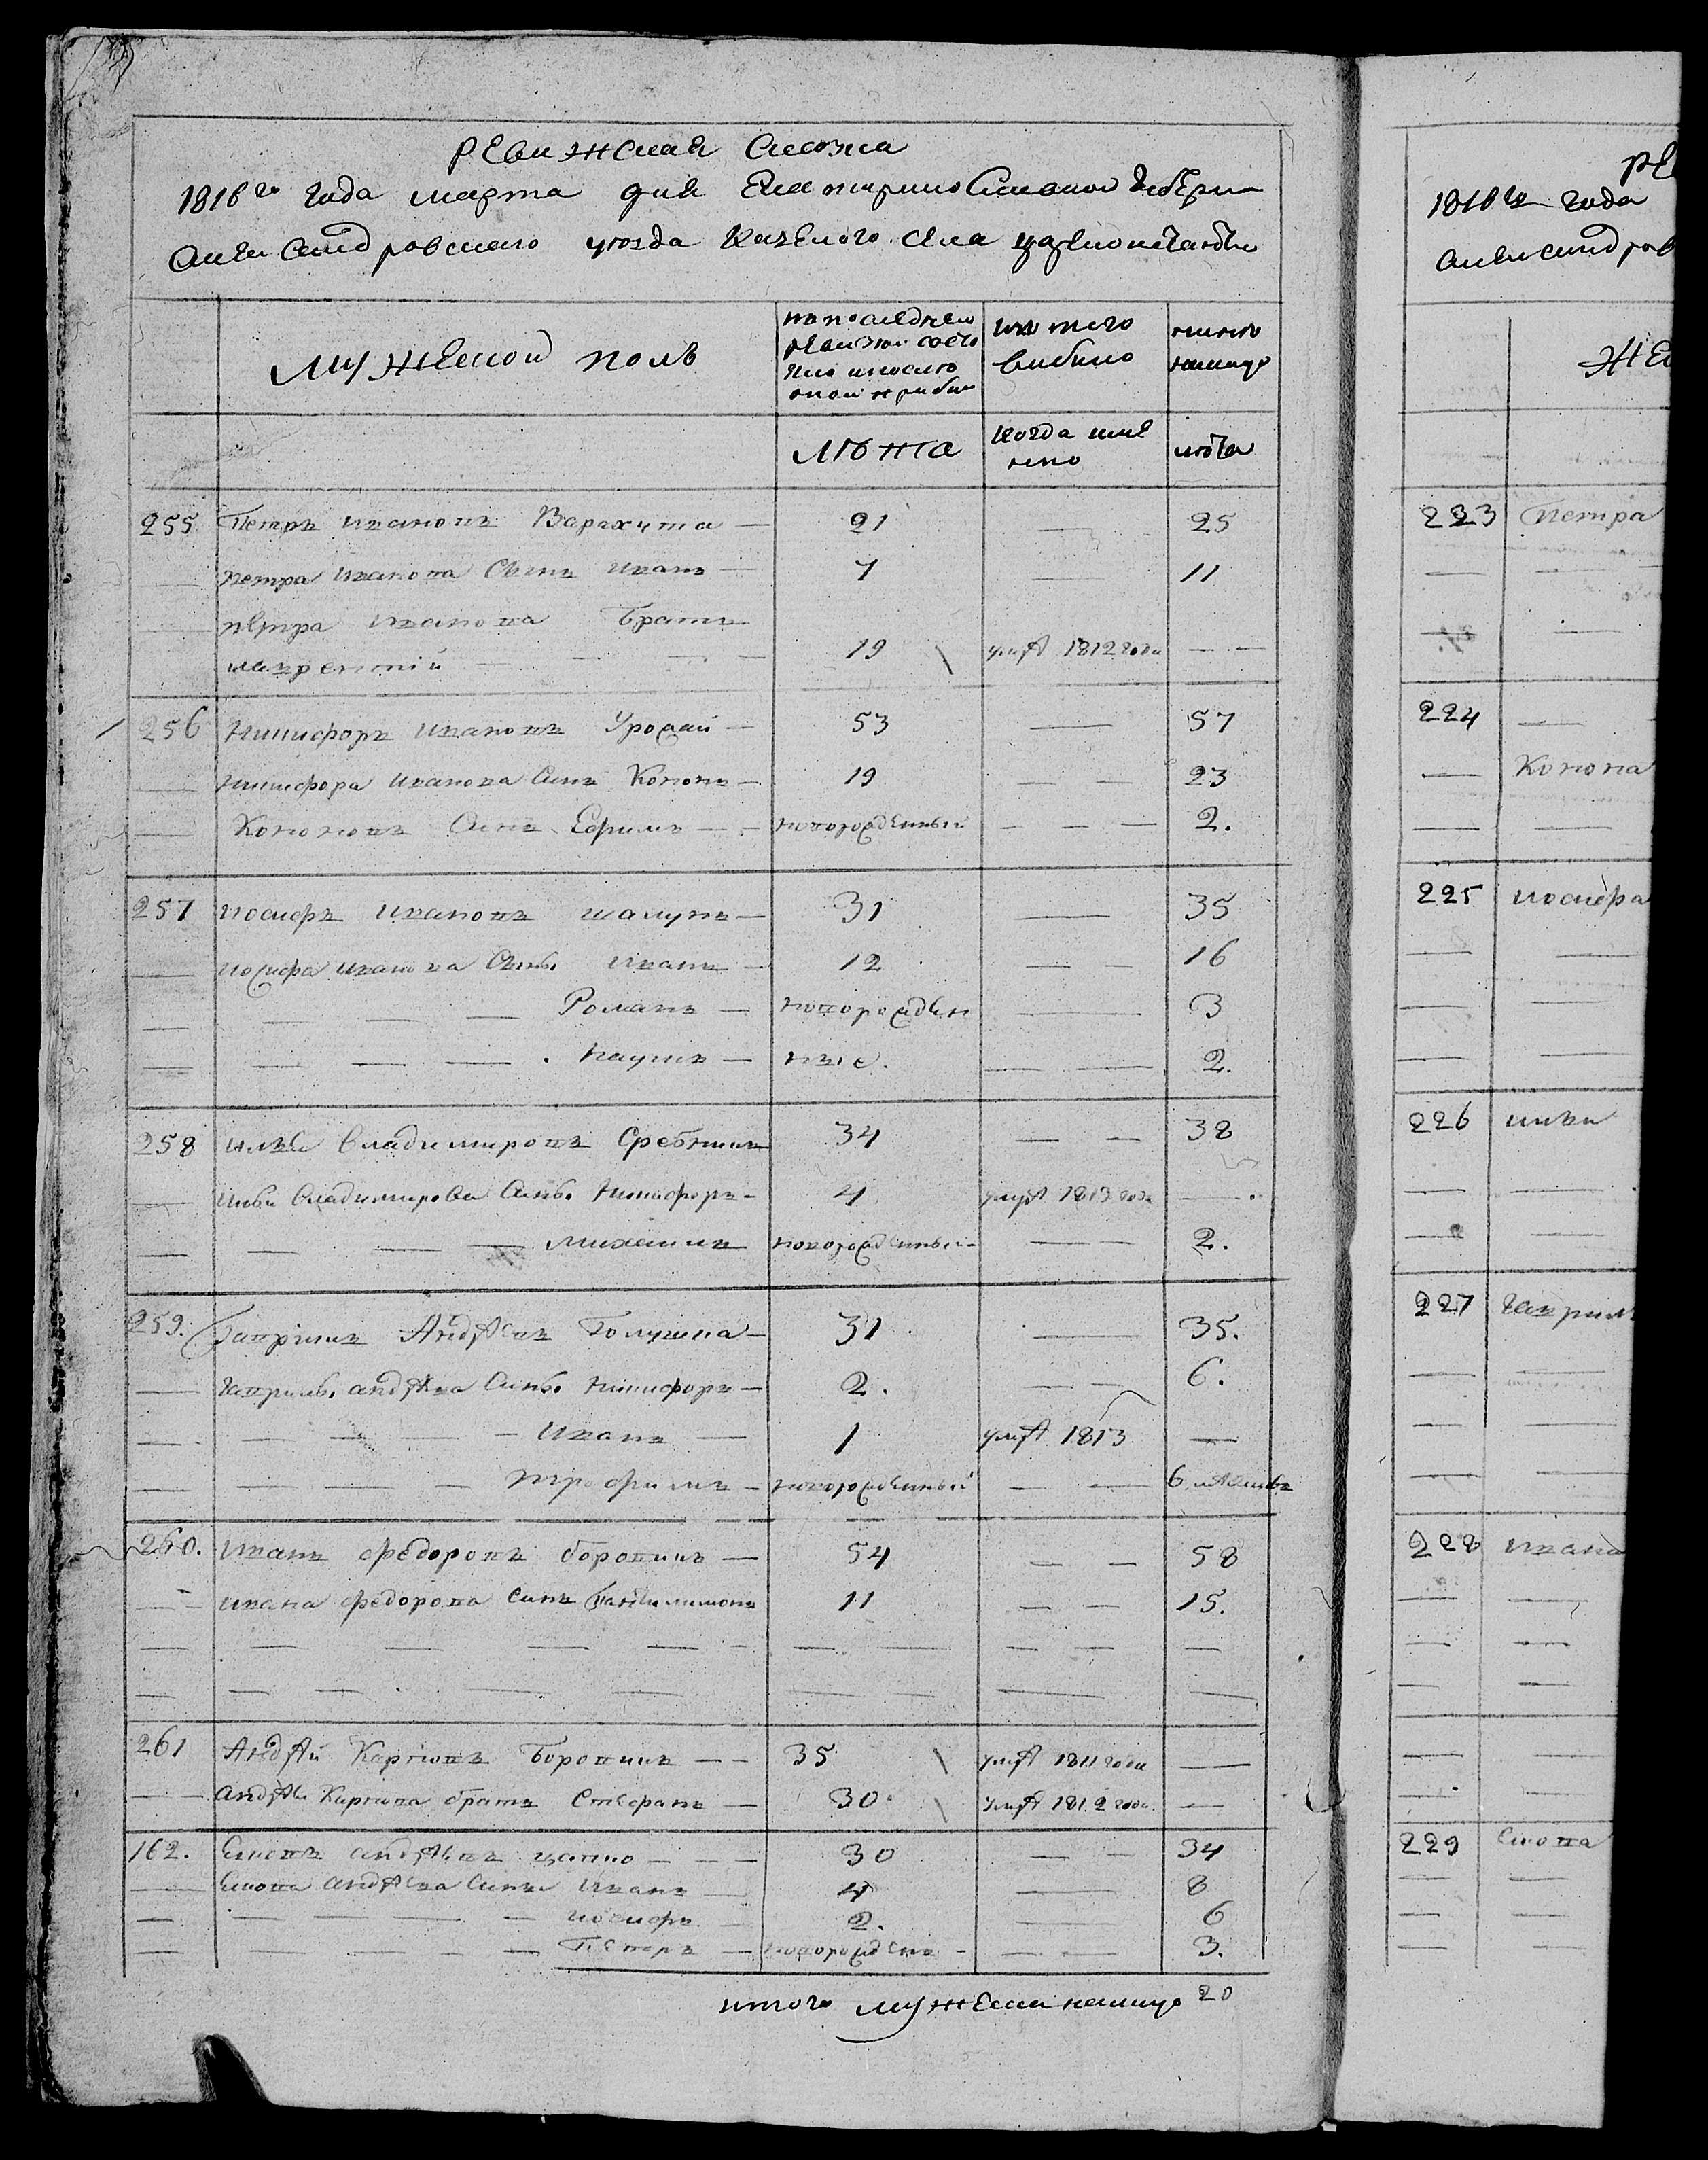 Ревижская Сказка
1816го года марта дня Екатеринославской Губерни
Александровского уезда Казеного села
мужеской полъ
по последнеи ревизии состо
яло и после оной прибыло
ис того выбыло
ныне налицо
лѣта
когда имен
но
лѣта
255 Петръ Ивановъ Варахута — 21 — 25
Петра Иванова Сынъ Иванъ — 7 — 11
Петра Иванова Братъ
Лаврентий — 19 умре 1812 года —
256 Никифоръ Ивановъ — 53 — 57
Никифора Иванова Синъ Кононъ — 19 — 23
Кононовъ Синъ Ефимъ — новорожденный — 2.
257 Иосифъ Ивановъ Шалунъ — 31 — 35
Иосифа Иванова Сины Иванъ — 12 — 16
Романъ — новорожден — 3
Наумъ — ные. — 2.
258 Илья Владимировъ Сребникъ 34 — 38
Ильи Владимирова Сины Никифоръ — 4 умре 1813 года —
Михаилъ новорожденный — 2.
259. Гаврилъ Андреевъ — 31 — 35.
Гаврилы Андреева Сины Никифоръ — 2. — 6.
Иванъ — 1 умре 1813 —
Трофимъ — новорожденный — 6 месяцовъ
260. Иванъ Федоровъ Боровикъ — 54 — 58
Ивана Федорова Синъ Пантилимонъ 11 — 15.
261 Андрей Карповъ Боровикъ — 35 умре 1811 года —
Андрея Карпова братъ Стефанъ — 30. умре 1812 года —
162. Андреевъ Цапко — 30 — 34
Андреева Сины Иванъ — 4 — 8
Иосифъ — 2. — 6
Петръ — новорожденъ — 3.
итого мужеска налицо 20
1816го года
Александров
223 Петра
224
Конона
225 Иосифа
226 Ильи
227 Гаврил
228 Ивана
229